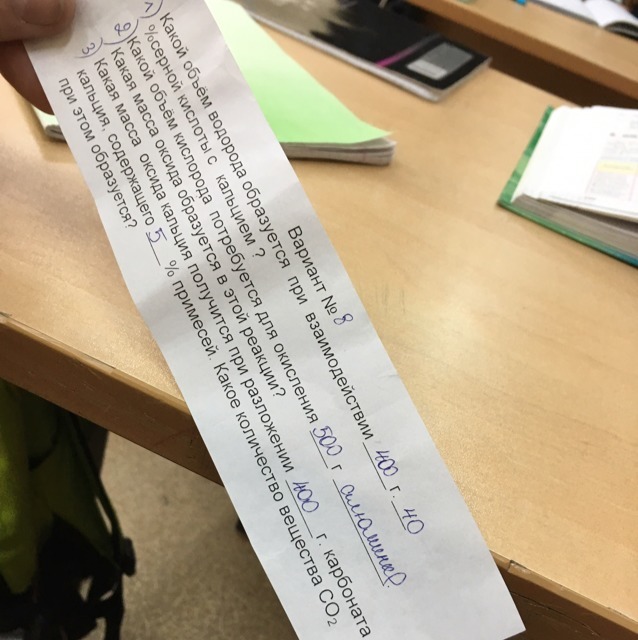 Вариант № 8
1) Какой объём водорода образуется при взаимодействии 400 г. 40
%серной кислоты с кальцием ?
2) Какой объём кислорода потребуется для окисления 500 г алюминия.
Какая масса оксида образуется в этой реакции?
3) Какая масса оксида кальция получится при разложении 400 г. карбоната
кальция, содержащего 5 % примесей. Какое количество вещества CO2
при этом образуется?